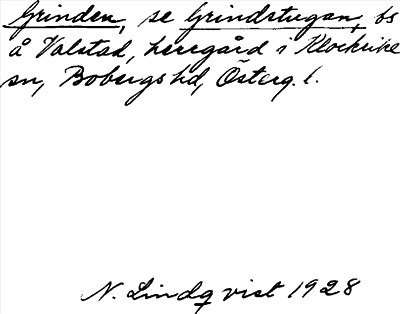 Grinden, se Grindstugan, bs
å Valstad, herrgård i Klockrike
sn, Bobergs hd, Österg. l.
N. Lindqvist 1928